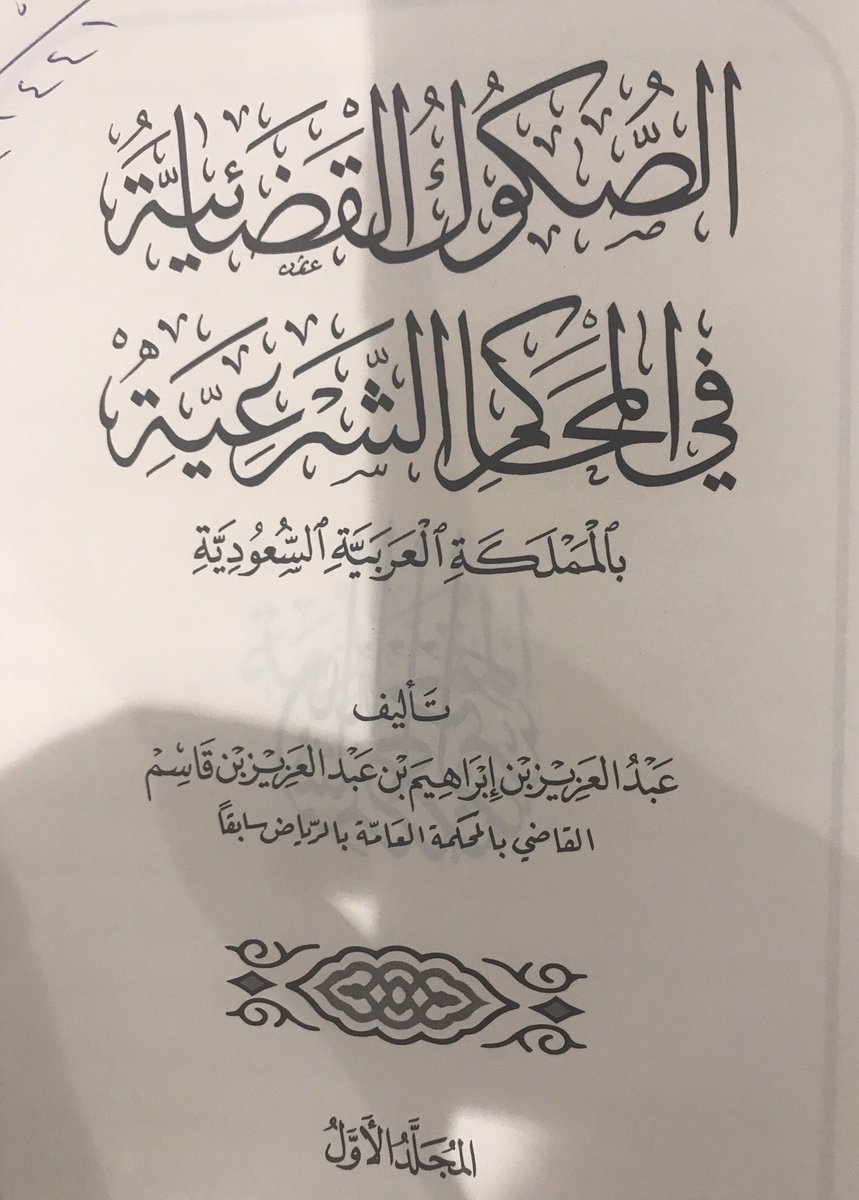 الصُّكُوكُ القَضَائِيَّةُ
فِي المَحَاكِمِ الشَّرْعِيَّةِ
بِالْمَمْلَكَةِ الْعَرَبِيَّةِ السُّعُودِيَّةِ
تَأليف
عَبْدُ العَزِيْزِ بْنِ إِبْرَاهِيمَ بْنِ عَبْدِ العَزِيْزِ بْنِ قَاسِمْ
القاضي بالمحكمة العامّة بالرّياض سابقاً
المُجَلَّدُ الأَوَّلُ